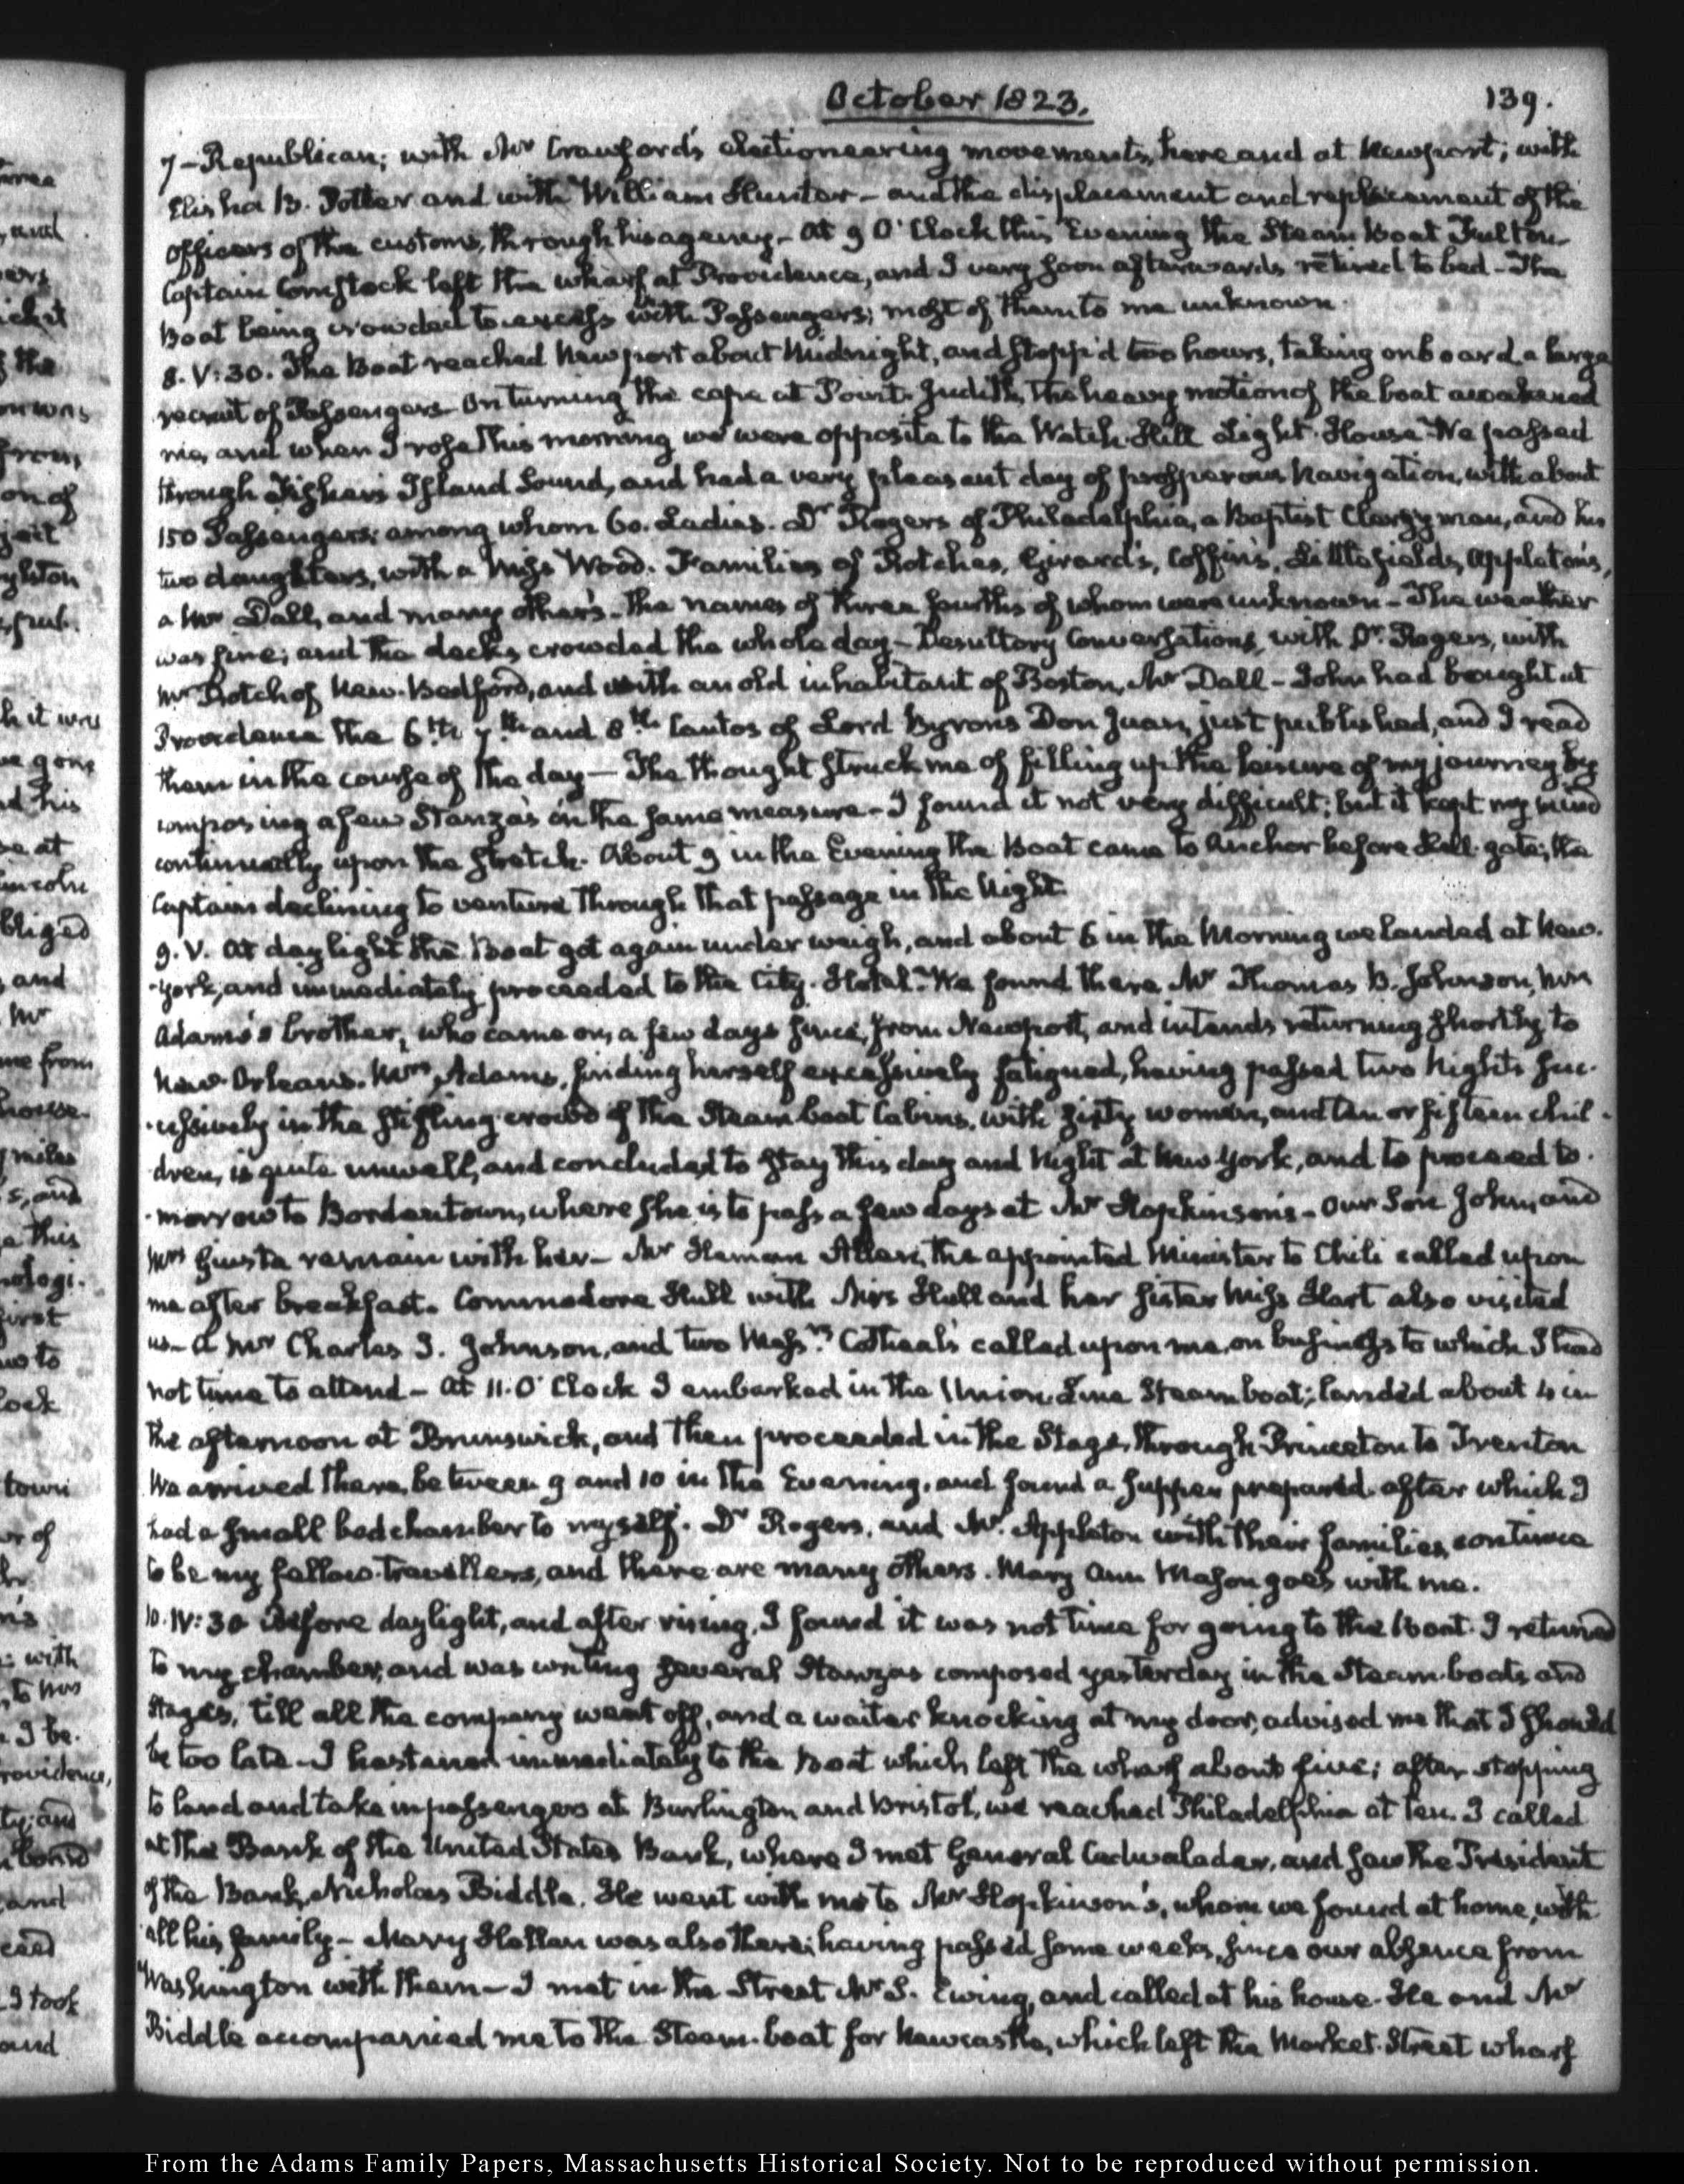 October 1823.
139.
7 – Republican; with Mr Crawford's electioneering movements, here and at Newport; with
Elisha B. Potter and with William Hunter – and the displacement and replacement of the
officers of the customs, through his agency – At 9 O'Clock this Evening the Steam Boat Fulton
Captain Comstock left the wharf at Providence, and I very soon afterwards retired to bed – The
Boat being crowded to excess with Passengers; most of them to me unknown.
8. V:30. The Boat reached Newport about Midnight, and stopp'd two hours, taking on board a large
recruit of Passengers. On turning the cape at Point Judith, the heavy motion of the boat awakened
me, and when I rose this morning we were opposite to the Watch-Hill Light-House. We passed
through Fisher's Island Sound, and had a very pleasant day of prosperous Navigation, with about
150 Passengers; among whom 60. Ladies. Dr Rogers of Philadelphia, a Baptist Clergyman, and his
two daughters, with a Miss Wood. Families of Rotches, Girard's, Coffin's, Littlefields, Appleton's,
a Mr Dall, and many others – the names of three fourths of whom were unknown – The weather
was fine; and the decks crowded the whole day – Desultory Conversations, with Dr Rogers, with
Mr Rotch of New-Bedford, and with an old inhabitant of Boston, Mr Dall – John had bought at
Providence the 6th 7th and 8th Cantos of Lord Byrons Don Juan, just published, and I read
them in the course of the day – The thought struck me of filling up the leisure of my journey by
composing a few Stanza's in the same measure – I found it not very difficult; but it kept my mind
continually upon the stretch. About 9 in the Evening the Boat came to Anchor before Hell-gate; the
Captain declining to venture through that passage in the Night.
9. V. At day light the Boat got again under weigh, and about 6 in the Morning we landed at New-
-York, and immediately proceeded to the City-Hotel. We found there Mr Thomas B. Johnson, Mrs
Adams's brother, who came on, a few days since, from Newport, and intends returning shortly to
New-Orleans. Mrs Adams, finding herself excessively fatigued, having passed two Nights suc-
-cessively in the stifling crowd of the Steam boat Cabins, with sixty women, and ten or fifteen chil-
dren, is quite unwell, and concluded to stay this day and Night at New York, and to proceed to-
-morrow to Bordentown, where she is to pass a few days at Mr Hopkinson's – Our Son John, and
Mrs Giusta remain with her – Mr Heman Allen, the appointed Minister to Chili called upon
me after breakfast. Commodore Hull with Mrs Hull and her Sister Miss Hart also visited
us – A Mr Charles J. Johnson, and two Messrs Catheal's called upon me, on business to which I had
not time to attend – At 11. O'Clock I embarked in the Union Line Steam boat; landed about 4 in
the afternoon at Brunswick, and then proceeded in the Stage, through Princeton to Trenton
We arrived there, between 9 and 10 in the Evening, and found a supper prepared after which I
had a small bed chamber to myself. Dr Rogers, and Mr Appleton with their families, continue
to be my fellow-travellers, and there are many others. Mary Ann Mason goes with me.
10. IV:30 Before daylight, and after rising, I found it was not time for going to the Boat. I returned
to my chamber, and was writing several Stanzas composed yesterday in the Steam-boats and
Stages, till all the company went off, and a waiter knocking at my door, advised me that I should
be too late – I hastened immediately to the Boat which left the wharf about five; after stopping
to land and take in passengers at Burlington and Bristol, we reached Philadelphia at ten. I called
at the Bank of the United States Bank, where I met General Cadwalader, and saw the President
of the Bank, Nicholas Biddle. He went with me to Mr Hopkinson's, whom we found at home, with
all his family – Mary Hellen was also there; having passed some weeks, since our absence from
Washington with them – I met in the Street Mr S. Ewing, and called at his house. He and Mr
Biddle accompanied me to the Steam-boat for Newcastle, which left the Market-Street wharf
From the Adams Family Papers, Massachusetts Historical Society. Not to be reproduced without permission.